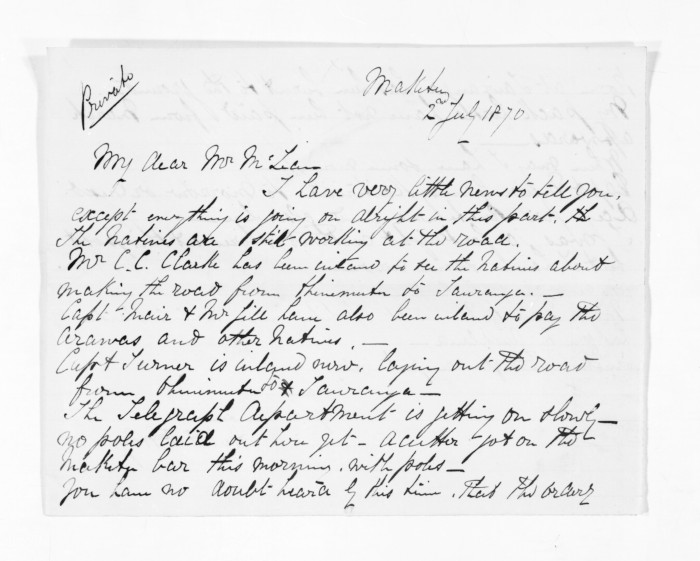 Private
Maketu
2nd July 1870
My dear Mr McLean
I have very little news to tell you,
except everything is going on alright in this part. th
The Natives are still working at the road.
Mr C.C. Clarke has been inland to see the Natives about
making the road from Ohinemutu to Tauranga. —
Capt Mair & Mr Gill have also been inland to pay the
Arawas and other Natives. —
Capt Turner is inland now, laying out the road
from Ohinemutu to Tauranga —
The Telegraph department is getting on slowly —
no poles laid out here yet — a cutter got on the
Maketu bar this morning, with poles —
You have no doubt heard by this time, that the